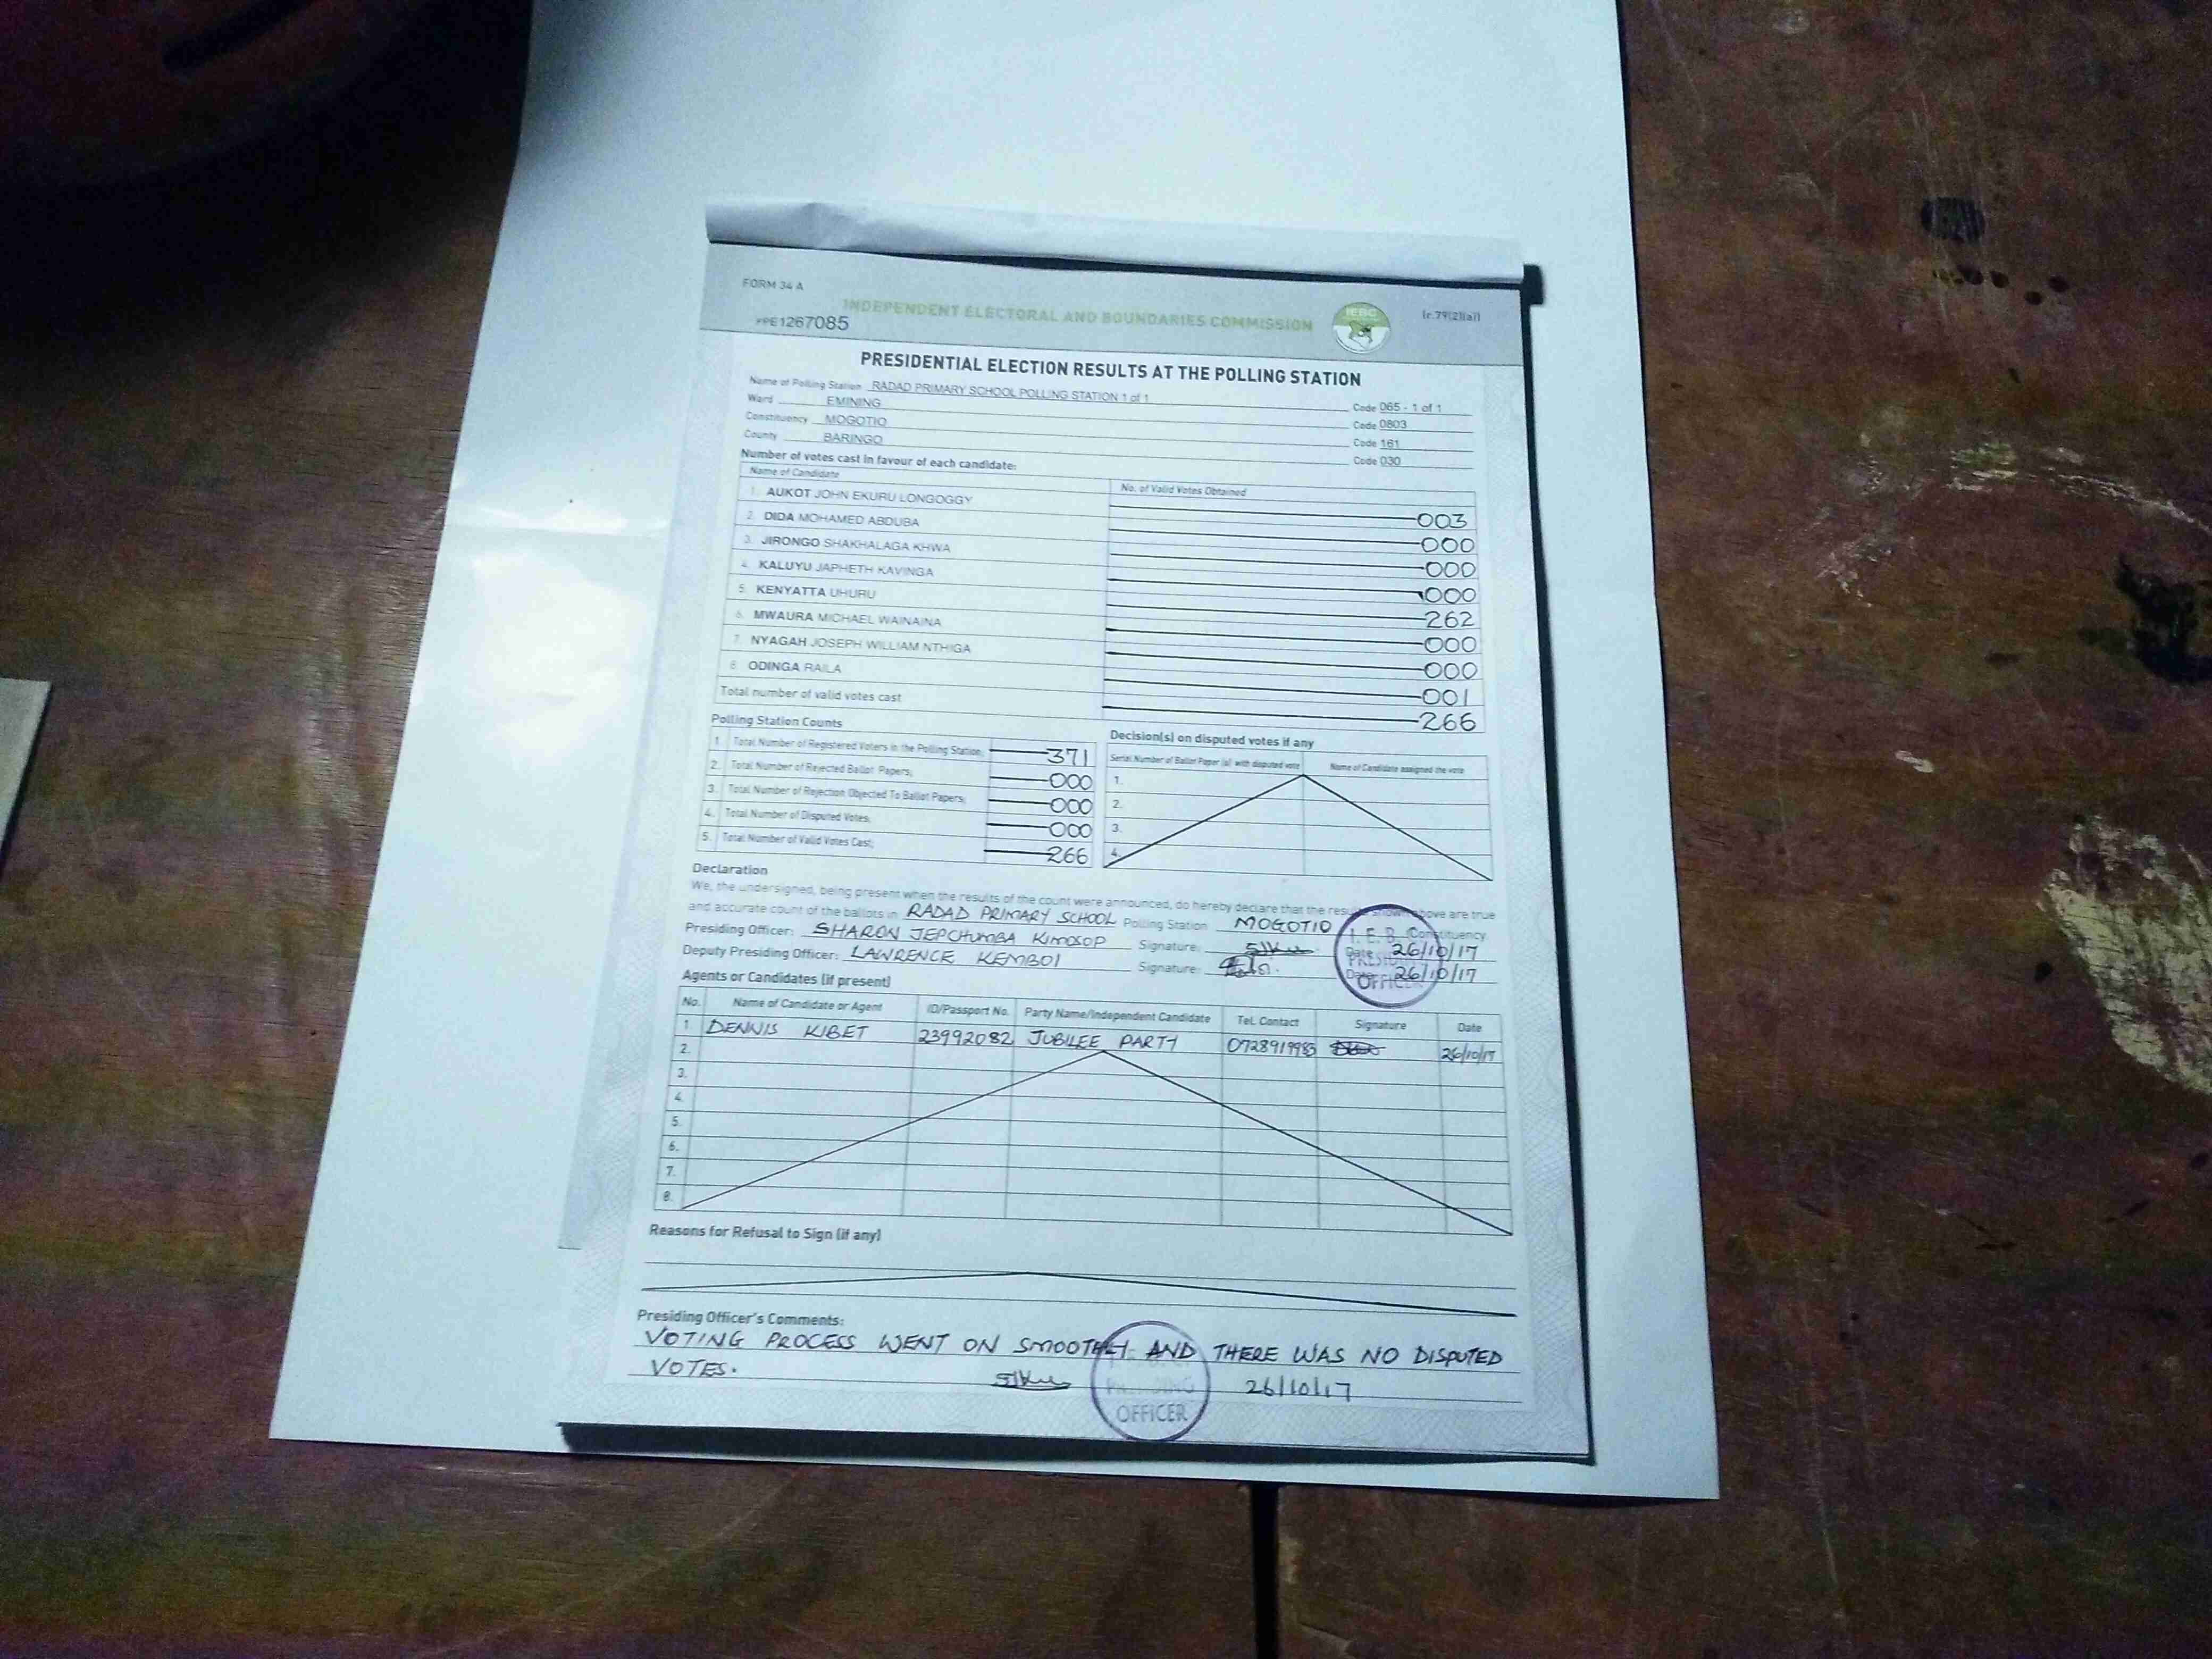 FORM 34 A
INDEPENDENT ELECTORAL AND BOUNDARIES COMMISSION IEBC (r.79(2)(a))
PPE1267085
PRESIDENTIAL ELECTION RESULTS AT THE POLLING STATION
Name of Polling Station RADAD PRIMARY SCHOOL POLLING STATION 1 of 1 Code 065 - 1 of 1
Ward EMINING Code 0803
Constituency MOGOTIO Code 161
County BARINGO Code 030
Number of votes cast in favour of each candidate:
Name of Candidate No. of Valid Votes Obtained
1. AUKOT JOHN EKURU LONGOGGY 003
2. DIDA MOHAMED ABDUBA 000
3. JIRONGO SHAKHALAGA KHWA 000
4. KALUYU JAPHETH KAVINGA 000
5. KENYATTA UHURU 262
6. MWAURA MICHAEL WAINAINA 000
7. NYAGAH JOSEPH WILLIAM NTHIGA 000
8. ODINGA RAILA 001
Total number of valid votes cast 266
Polling Station Counts
1. Total Number of Registered Voters in the Polling Station; 371
2. Total Number of Rejected Ballot Papers; 000
3. Total Number of Rejection Objected To Ballot Papers; 000
4. Total Number of Disputed Votes; 000
5. Total Number of Valid Votes Cast; 266
Decision(s) on disputed votes if any
Serial Number of Ballot Paper (s) with disputed vote Name of Candidate assigned the vote
1.
2.
3.
4.
Declaration
We, the undersigned, being present when the results of the count were announced, do hereby declare that the results shown above are true
and accurate count of the ballots in RADAD PRIMARY SCHOOL Polling Station MOGOTIO Constituency
Presiding Officer: SHARON JEPCHUMBA KIMOSOP Signature: Date 26/10/17
Deputy Presiding Officer: LAWRENCE KEMBOI Signature: Date 26/10/17
I.E.B.C
PRESIDING
OFFICER
Agents or Candidates (if present)
No. Name of Candidate or Agent ID/Passport No. Party Name/Independent Candidate Tel. Contact Signature Date
1. DENNIS KIBET 23992082 JUBILEE PARTY 0728919983 26/10/17
2.
3.
4.
5.
6.
7.
8.
Reasons for Refusal to Sign (if any)
Presiding Officer's Comments:
VOTING PROCESS WENT ON SMOOTHLY AND THERE WAS NO DISPUTED
VOTES. 26/10/17
PRESIDING
OFFICER